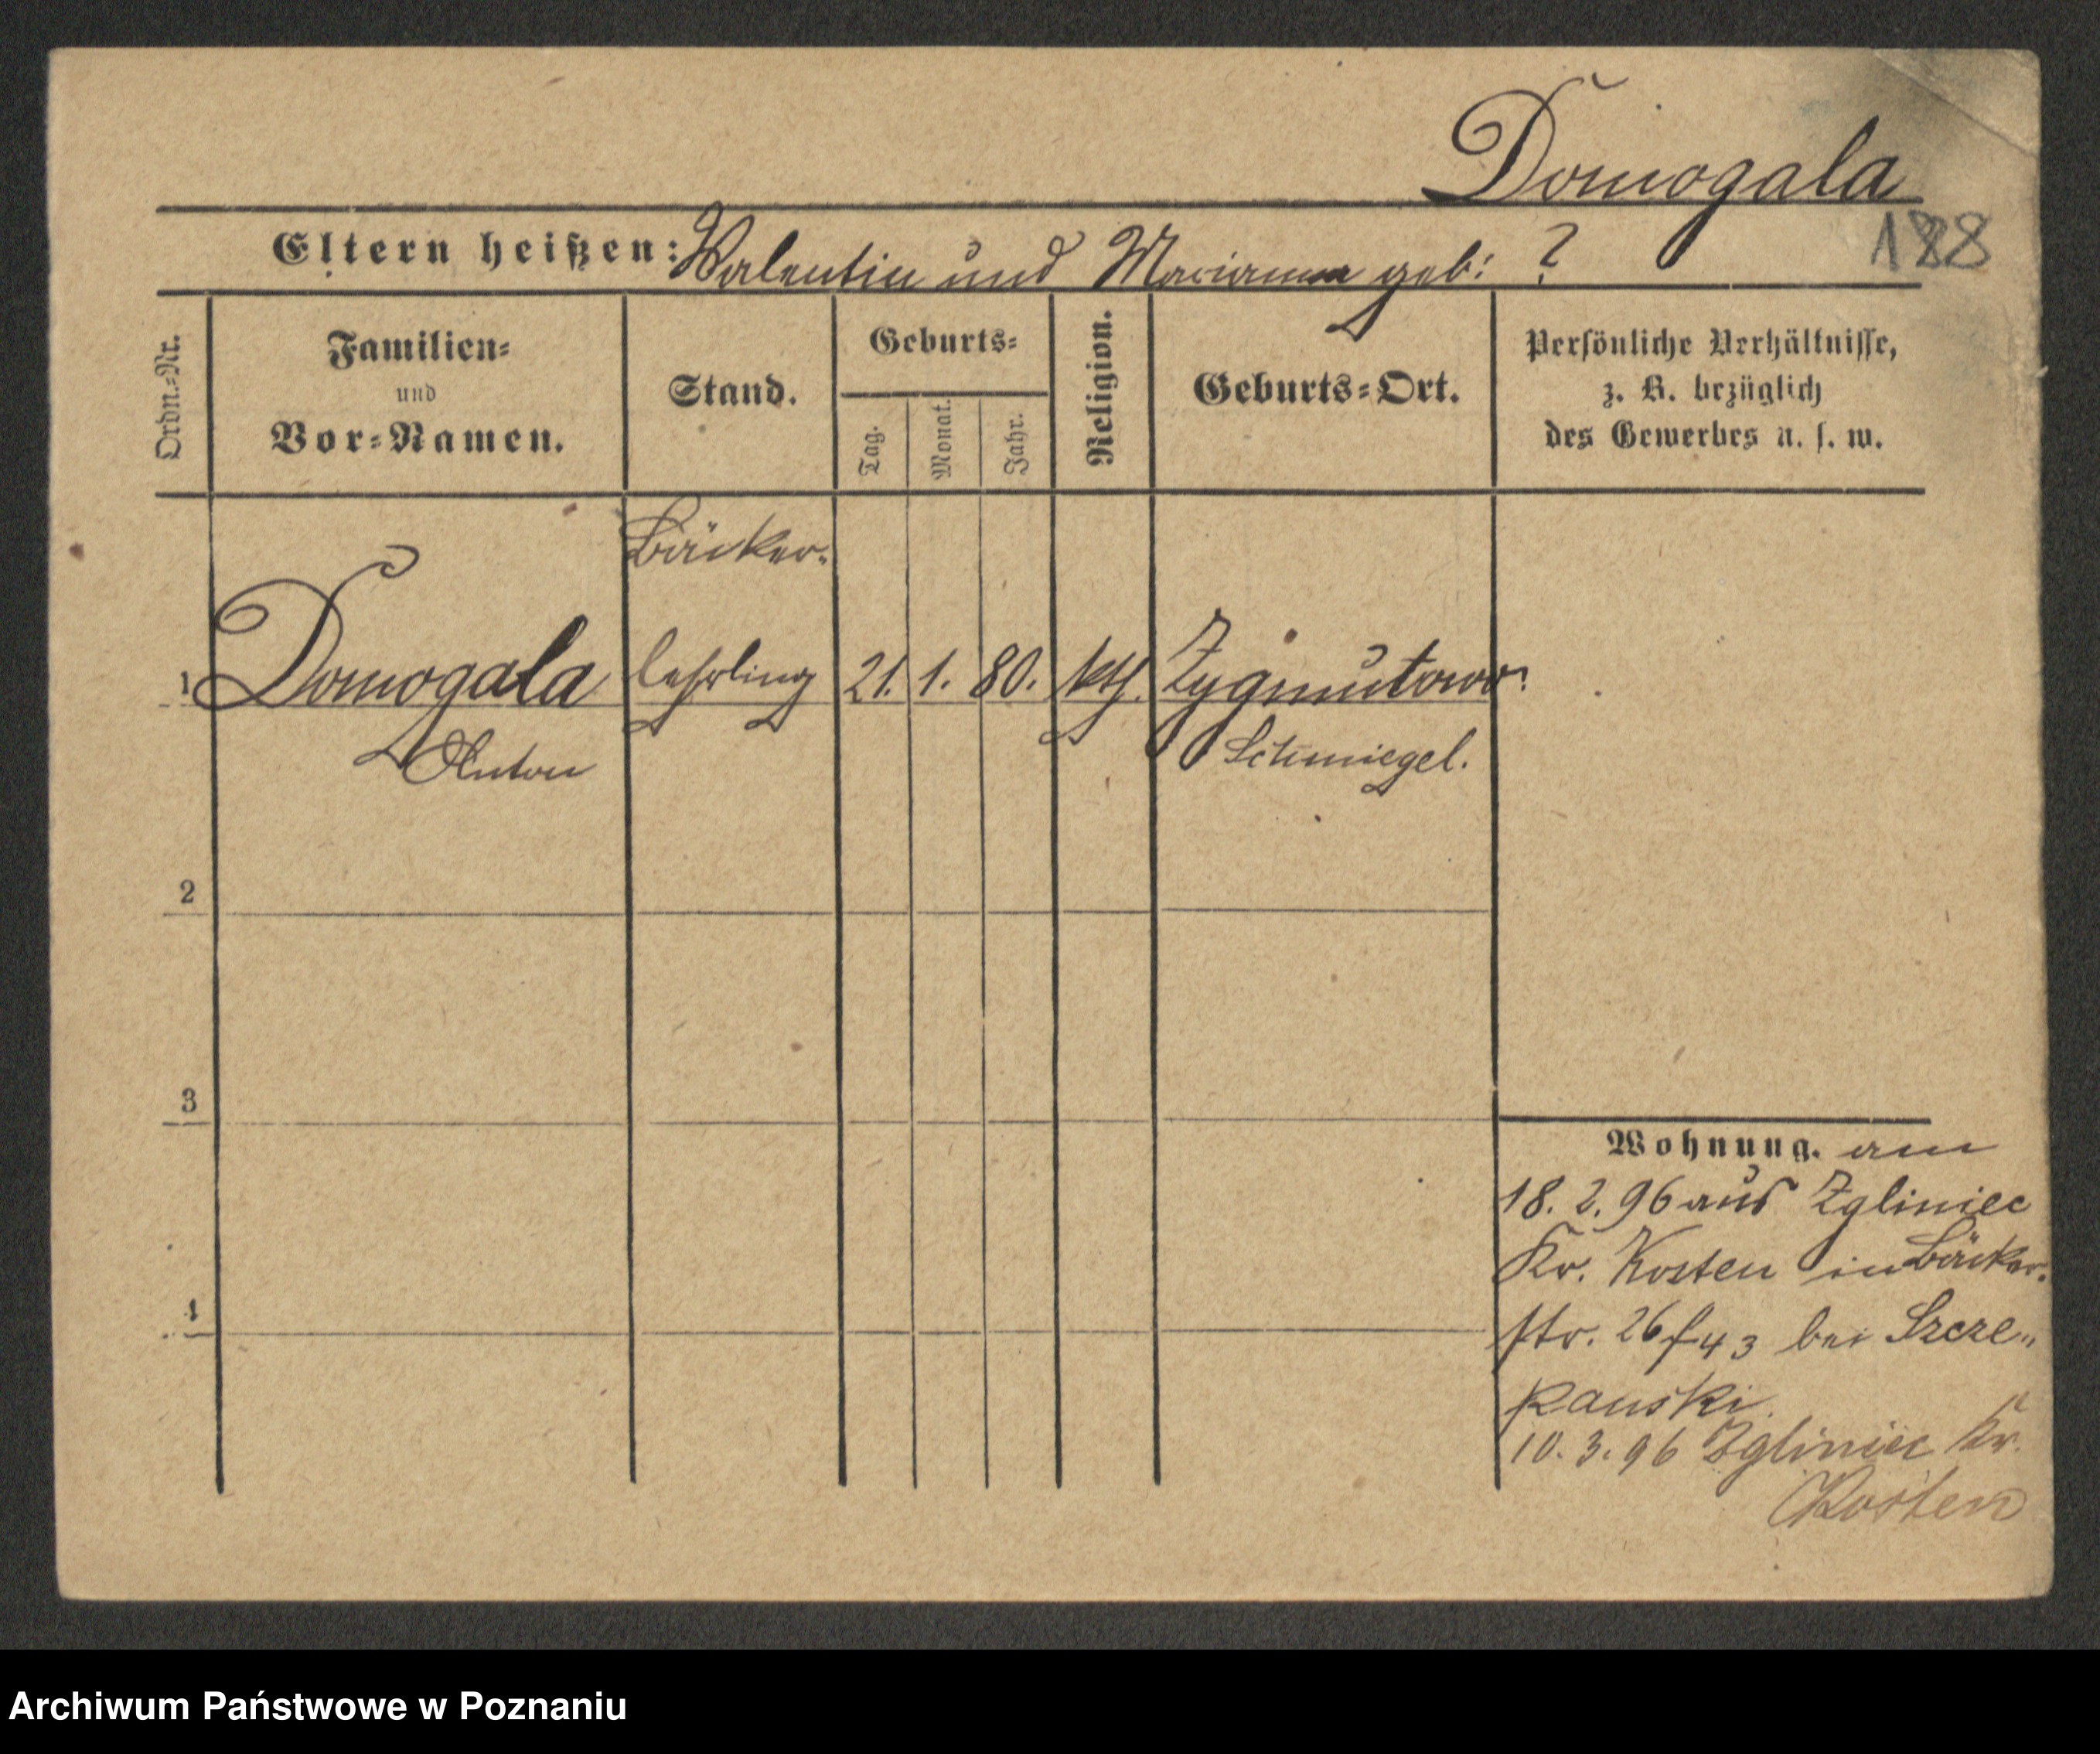 Domogala
188
Eltern heißen: Valentin und Marianna geb: ?
Ordn.=Nr.
Familien=
und
Vor=Namen.
Stand.
Geburts=
Tag.
Monat.
Jahr.
Religion.
Geburts=Ort.
Persönliche Verhältnisse,
z. B. bezüglich
des Gewerbes u. s. w.
Bäcker=
1 Domogala lehrling 21. 1. 80. kth. Zygmutowo
Anton Schmiegel.
2
3
4
Wohnung. am
18. 2. 96 aus Zgliniec
Kr. Kosten in Bäcker=
str. 26 bei Szcze„
panski.
10. 3. 96 Zgliniec Kr.
Kosten
Archiwum Państwowe w Poznaniu